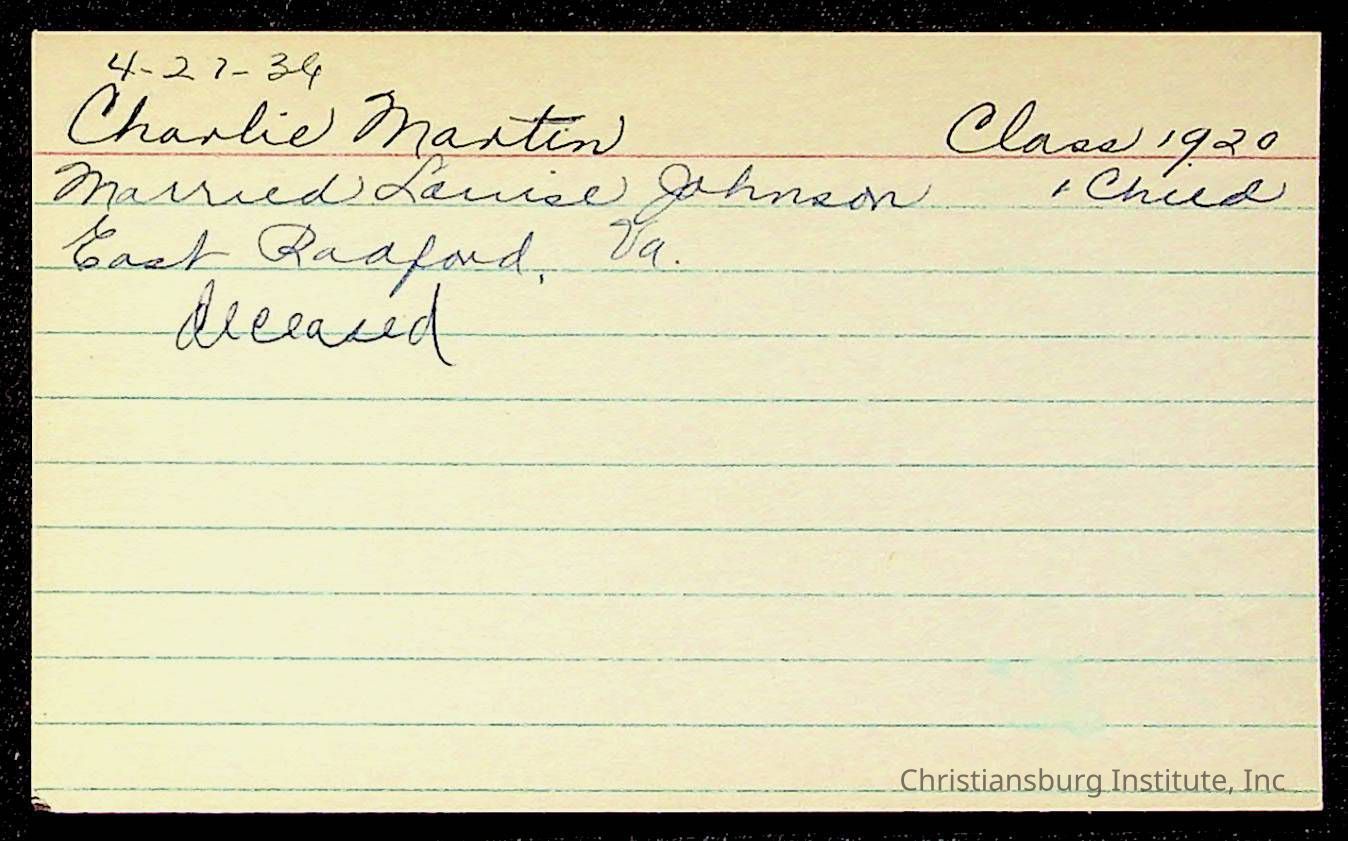 4-27-34
Charlie Martin Class 1920
Married Louise Johnson 1 Child
East Radford, Va.
deceased
Christiansburg Institute, Inc